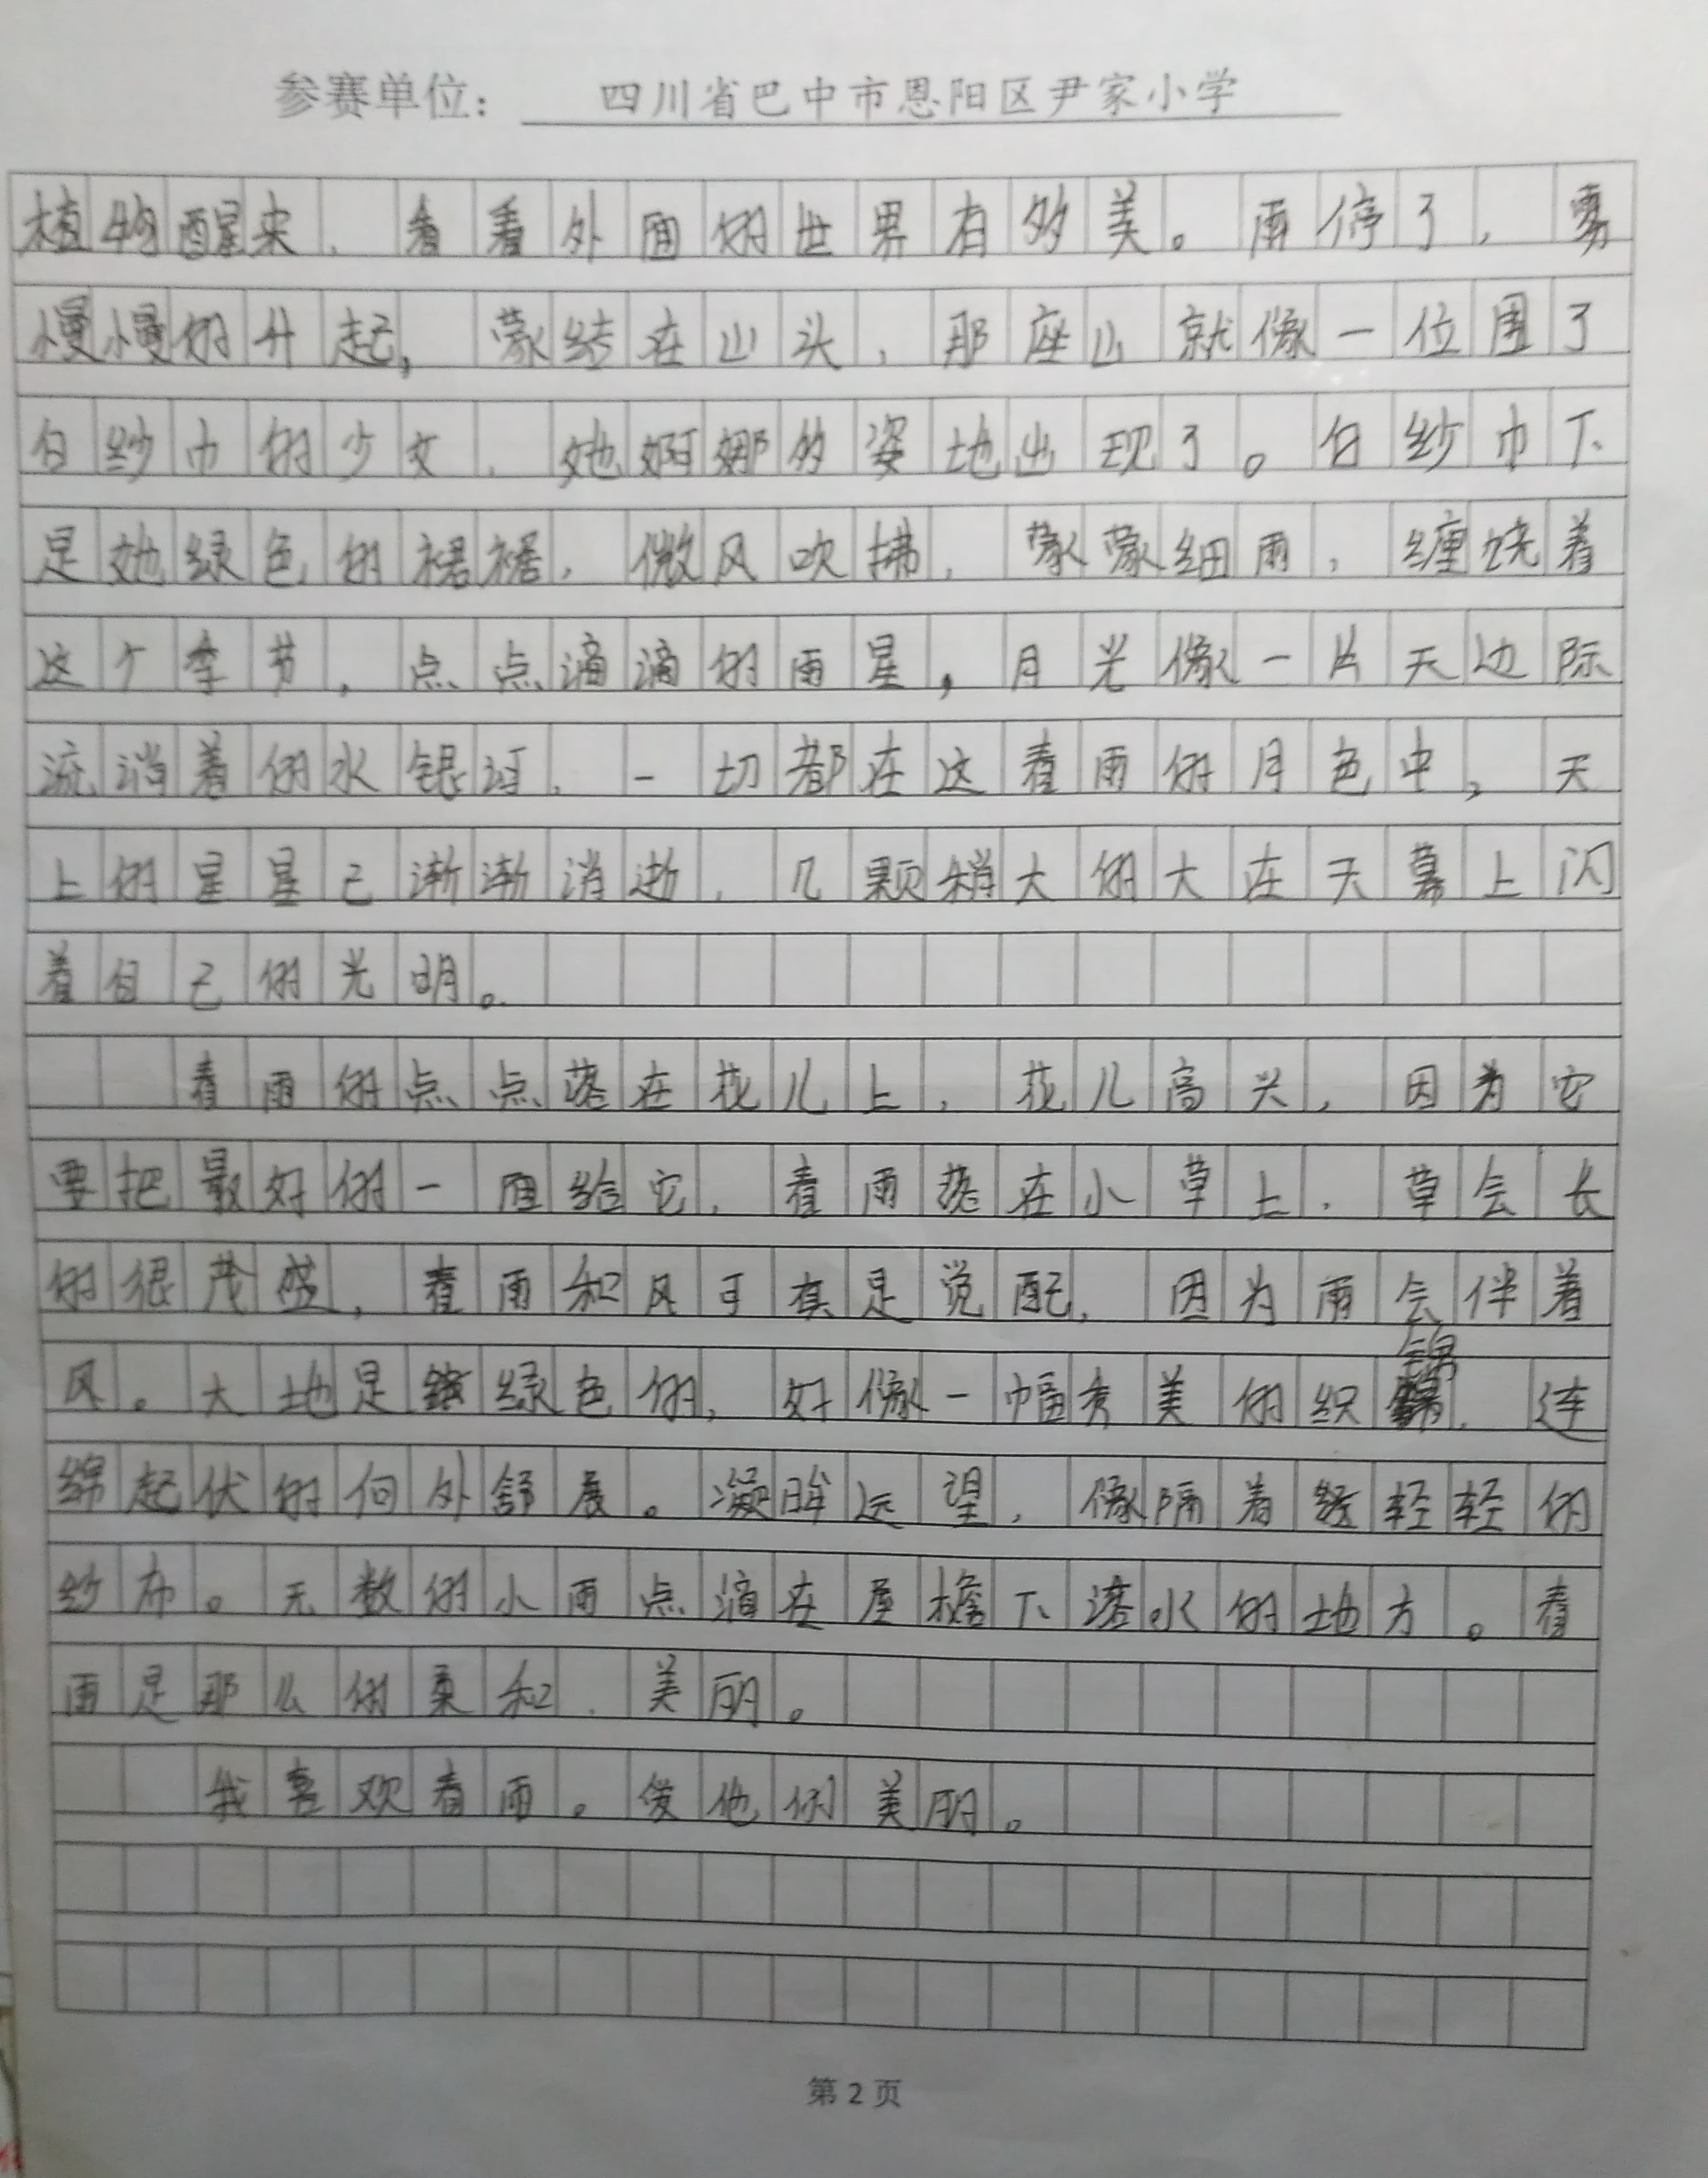 参赛单位： 四川省巴中市恩阳区尹家小学
植物醒来，看看外面的世界有多美。雨停了，雾
慢慢的升起，蒙结在山头，那座山就像一位围了
白纱巾的少女，她婀娜的姿地出现了。白纱巾下
是她绿色的裙裙，微风吹拂，蒙蒙细雨，缠饶着
这个季节，点点滴滴的雨星，月光像一片天边际
流淌着的水银河，一切都在这春雨的月色中，天
上的星星已渐渐消逝，几颗稍大的大在天幕上闪
着自己的光明。
春雨的点点落在花儿上，花儿高兴，因为它
要把最好的一面给它，春雨落在小草上，草会长
的很茂盛，春雨和风可真是觉配，因为雨会伴着
风。大地是绿色的，好像一幅秀美的织锦，连
绵起伏的向外舒展。凝眸远望，像隔着轻轻的
纱布。无数的小雨点滴在屋檐下落水的地方。春
雨是那么的柔和，美丽。
我喜欢春雨。爱他的美丽。
第 2 页